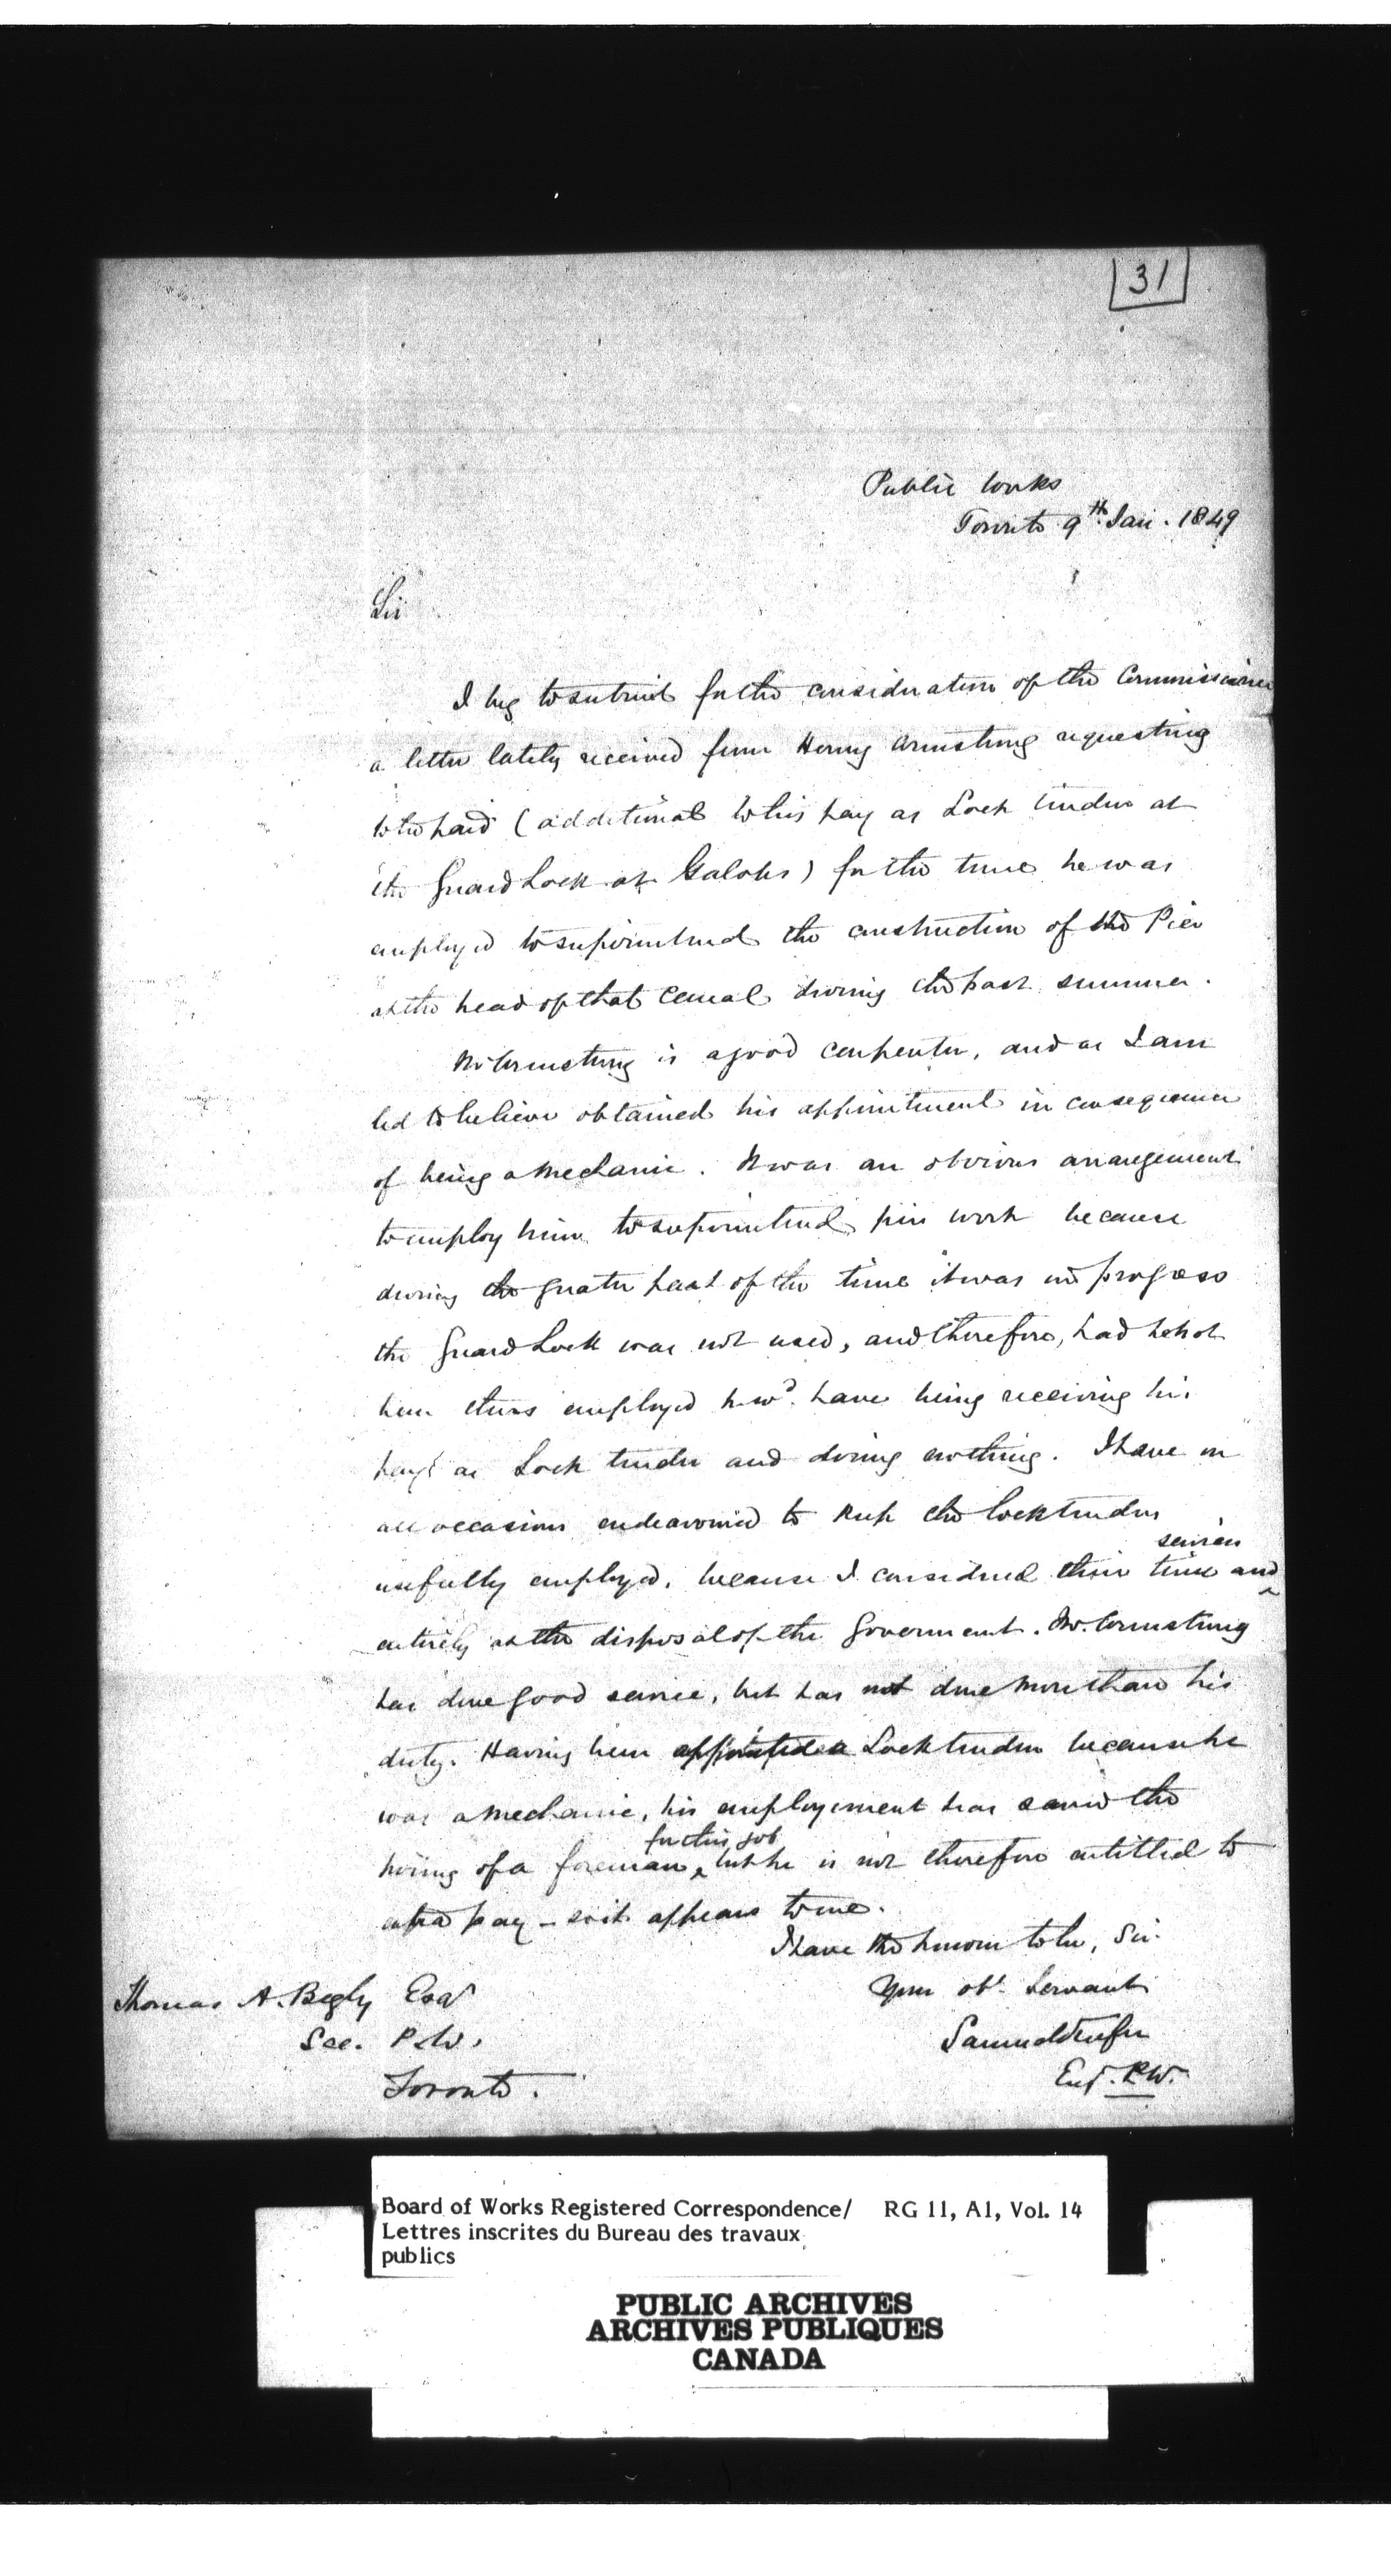 31
Public Works
Toronto 9th Jan. 1849
Sir
I beg to submit for the consideration of the Commissioners
a letter lately received from Henry Armstrong requesting
to be paid (additional to his pay as Lock tender at
the Guard Lock at Galops) for the time he was
employed to superintend the construction of the Pier
at the head of that Canal during the past summer.
Mr Armstrong is a good carpenter, and as I am
led to believe obtained his appointment in consequence
of being a Mechanic. It was an obvious arrangement
to employ him to superintend pier work because
during the greater part of the time it was in progress
the Guard Lock was not used, and therefore, had he not
been thus employed he wd. have being receiving his
pay as Lock tender and doing nothing. I have on
all occasions endeavoured to keep the locktenders
services
usefully employed, because I considered their time and
entirely at the disposal of the Government. Mr. Armstrong
has done good service, but has not done more than his
duty. Having been appointed a Lock tender because he
was a Mechanic, his employement has saved the
for this job
hiring of a foreman, but he is not therefore entitled to
extra pay - so it appears to me.
I have the honour to be, Sir.
Your obt. Servant
Samuel Keefer
Eng. P.W.
Thomas A. Begly Esqr
Sec. P.W.
Toronto.
Board of Works Registered Correspondence/ RG 11, A1, Vol. 14
Lettres inscrites du Bureau des travaux
publics
PUBLIC ARCHIVES
ARCHIVES PUBLIQUES
CANADA